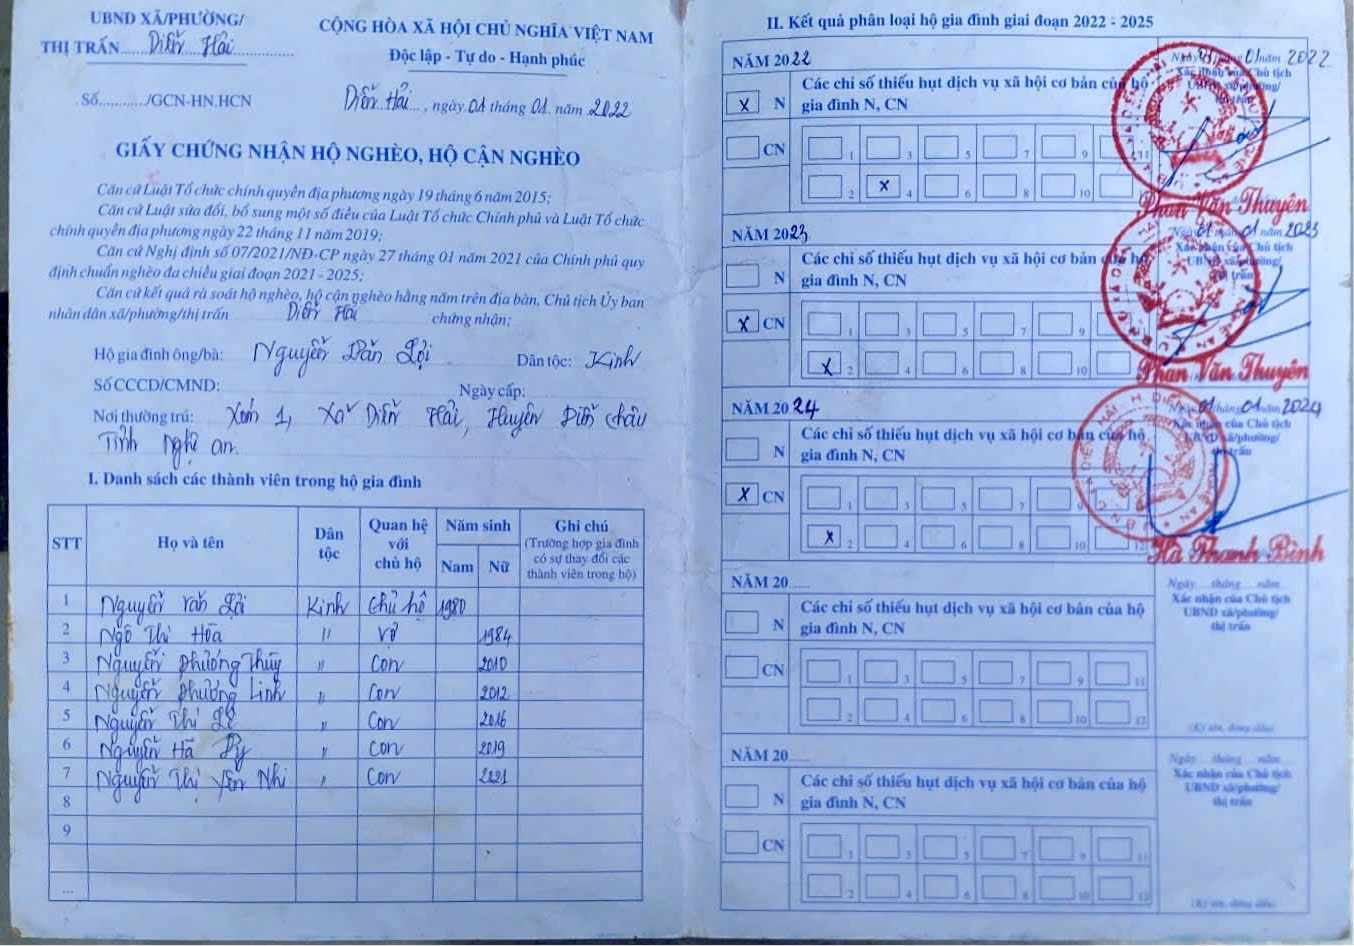 UBND XÃ/PHƯỜNG/
THỊ TRẤN Diễn Hải
Số............/GCN-HN.HCN
CỘNG HÒA XÃ HỘI CHỦ NGHĨA VIỆT NAM
Độc lập - Tự do - Hạnh phúc
Diễn Hải, ngày 01 tháng 01 năm 2022
GIẤY CHỨNG NHẬN HỘ NGHÈO, HỘ CẬN NGHÈO
Căn cứ Luật Tổ chức chính quyền địa phương ngày 19 tháng 6 năm 2015;
Căn cứ Luật sửa đổi, bổ sung một số điều của Luật Tổ chức Chính phủ và Luật Tổ chức
chính quyền địa phương ngày 22 tháng 11 năm 2019;
Căn cứ Nghị định số 07/2021/NĐ-CP ngày 27 tháng 01 năm 2021 của Chính phủ quy
định chuẩn nghèo đa chiều giai đoạn 2021 - 2025;
Căn cứ kết quả rà soát hộ nghèo, hộ cận nghèo hằng năm trên địa bàn, Chủ tịch Ủy ban
nhân dân xã/phường/thị trấn Diễn Hải chứng nhận;
Hộ gia đình ông/bà: Nguyễn Văn Lợi Dân tộc: Kinh
Số CCCD/CMND: Ngày cấp:
Nơi thường trú: Xóm 1, Xã Diễn Hải, Huyện Diễn Châu
Tỉnh Nghệ an.
I. Danh sách các thành viên trong hộ gia đình
STT Họ và tên Dân tộc Quan hệ với chủ hộ Năm sinh Nam Nữ Ghi chú (Trường hợp gia đình có sự thay đổi các thành viên trong hộ)
1 Nguyễn Văn Lợi Kinh Chủ hộ 1980
2 Ngô Thị Hòa " Vợ 1984
3 Nguyễn Phương Thùy " Con 2010
4 Nguyễn Phương Linh " Con 2012
5 Nguyễn Thị Lê " Con 2016
6 Nguyễn Hà Vy " Con 2019
7 Nguyễn Thị Yến Nhi " Con 2021
8
9
...
II. Kết quả phân loại hộ gia đình giai đoạn 2022 - 2025
NĂM 2022
x N
CN
Các chỉ số thiếu hụt dịch vụ xã hội cơ bản của hộ
gia đình N, CN
1 3 5 7 9 11
2 x 4 6 8 10
Ngày 01 tháng 01 năm 2022
Xác nhận của Chủ tịch
UBND xã/phường/
thị trấn
Phan Văn Thuyên
NĂM 2023
N
x CN
Các chỉ số thiếu hụt dịch vụ xã hội cơ bản của hộ
gia đình N, CN
1 3 5 7 9
x 2 4 6 8 10
Ngày 01 tháng 01 năm 2023
Xác nhận của Chủ tịch
UBND xã/phường/
thị trấn
Phan Văn Thuyên
NĂM 2024
N
x CN
Các chỉ số thiếu hụt dịch vụ xã hội cơ bản của hộ
gia đình N, CN
1 3 5 7 9
x 2 4 6 8 10 12
Ngày 01 tháng 01 năm 2024
Xác nhận của Chủ tịch
UBND xã/phường/
thị trấn
Hà Thanh Bình
NĂM 20......
N
CN
Các chỉ số thiếu hụt dịch vụ xã hội cơ bản của hộ
gia đình N, CN
1 3 5 7 9 11
2 4 6 8 10 12
Ngày .... tháng .... năm ....
Xác nhận của Chủ tịch
UBND xã/phường/
thị trấn
(Ký tên, đóng dấu)
NĂM 20......
N
CN
Các chỉ số thiếu hụt dịch vụ xã hội cơ bản của hộ
gia đình N, CN
1 3 5 7 9 11
2 4 6 8 10 12
Ngày .... tháng .... năm ....
Xác nhận của Chủ tịch
UBND xã/phường/
thị trấn
(Ký tên, đóng dấu)